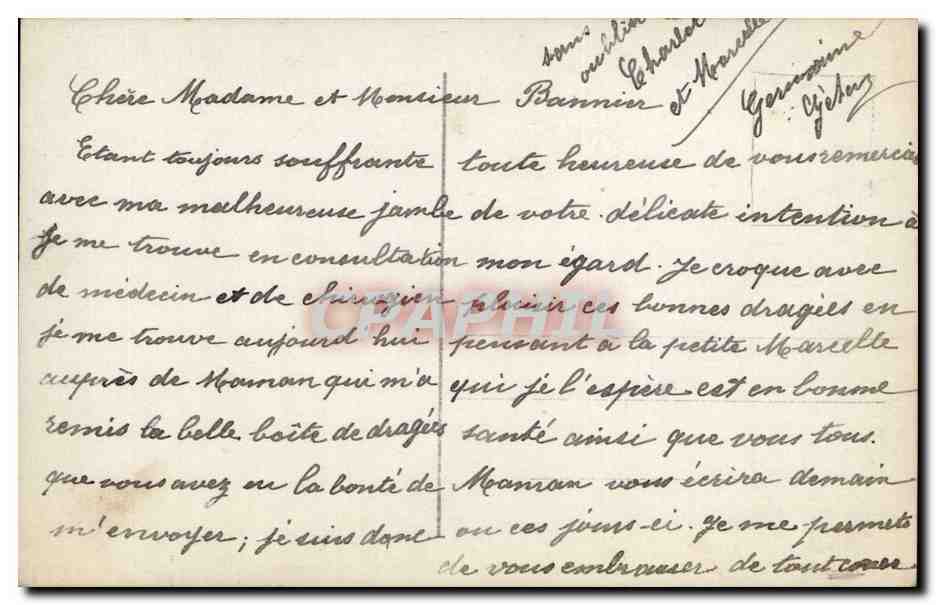 Chère Madame et Monsieur Bannier
Etant toujours souffrante
avec ma malheureuse jambe
je me trouve en consultation
de médecin et de chirugien
je me trouve aujourd hui
auprès de Maman qui m'a
remis la belle boîte de dragées
que vous avez eu la bonté de
m'envoyer ; je suis donc
toute heureuse de vous remercier
de votre délicate intention à
mon égard. Je croque avec
plaisir ces bonnes dragées en
pensant a la petite Marcelle
qui je l'espère est en bonne
santé ainsi que vous tous.
Maman vous écrira demain
ou ces jours-ci. Je me permets
de vous embrasser de tout coeur
sans
oublier
Charlot
et Marcelle
Germaine
CPAPHIL